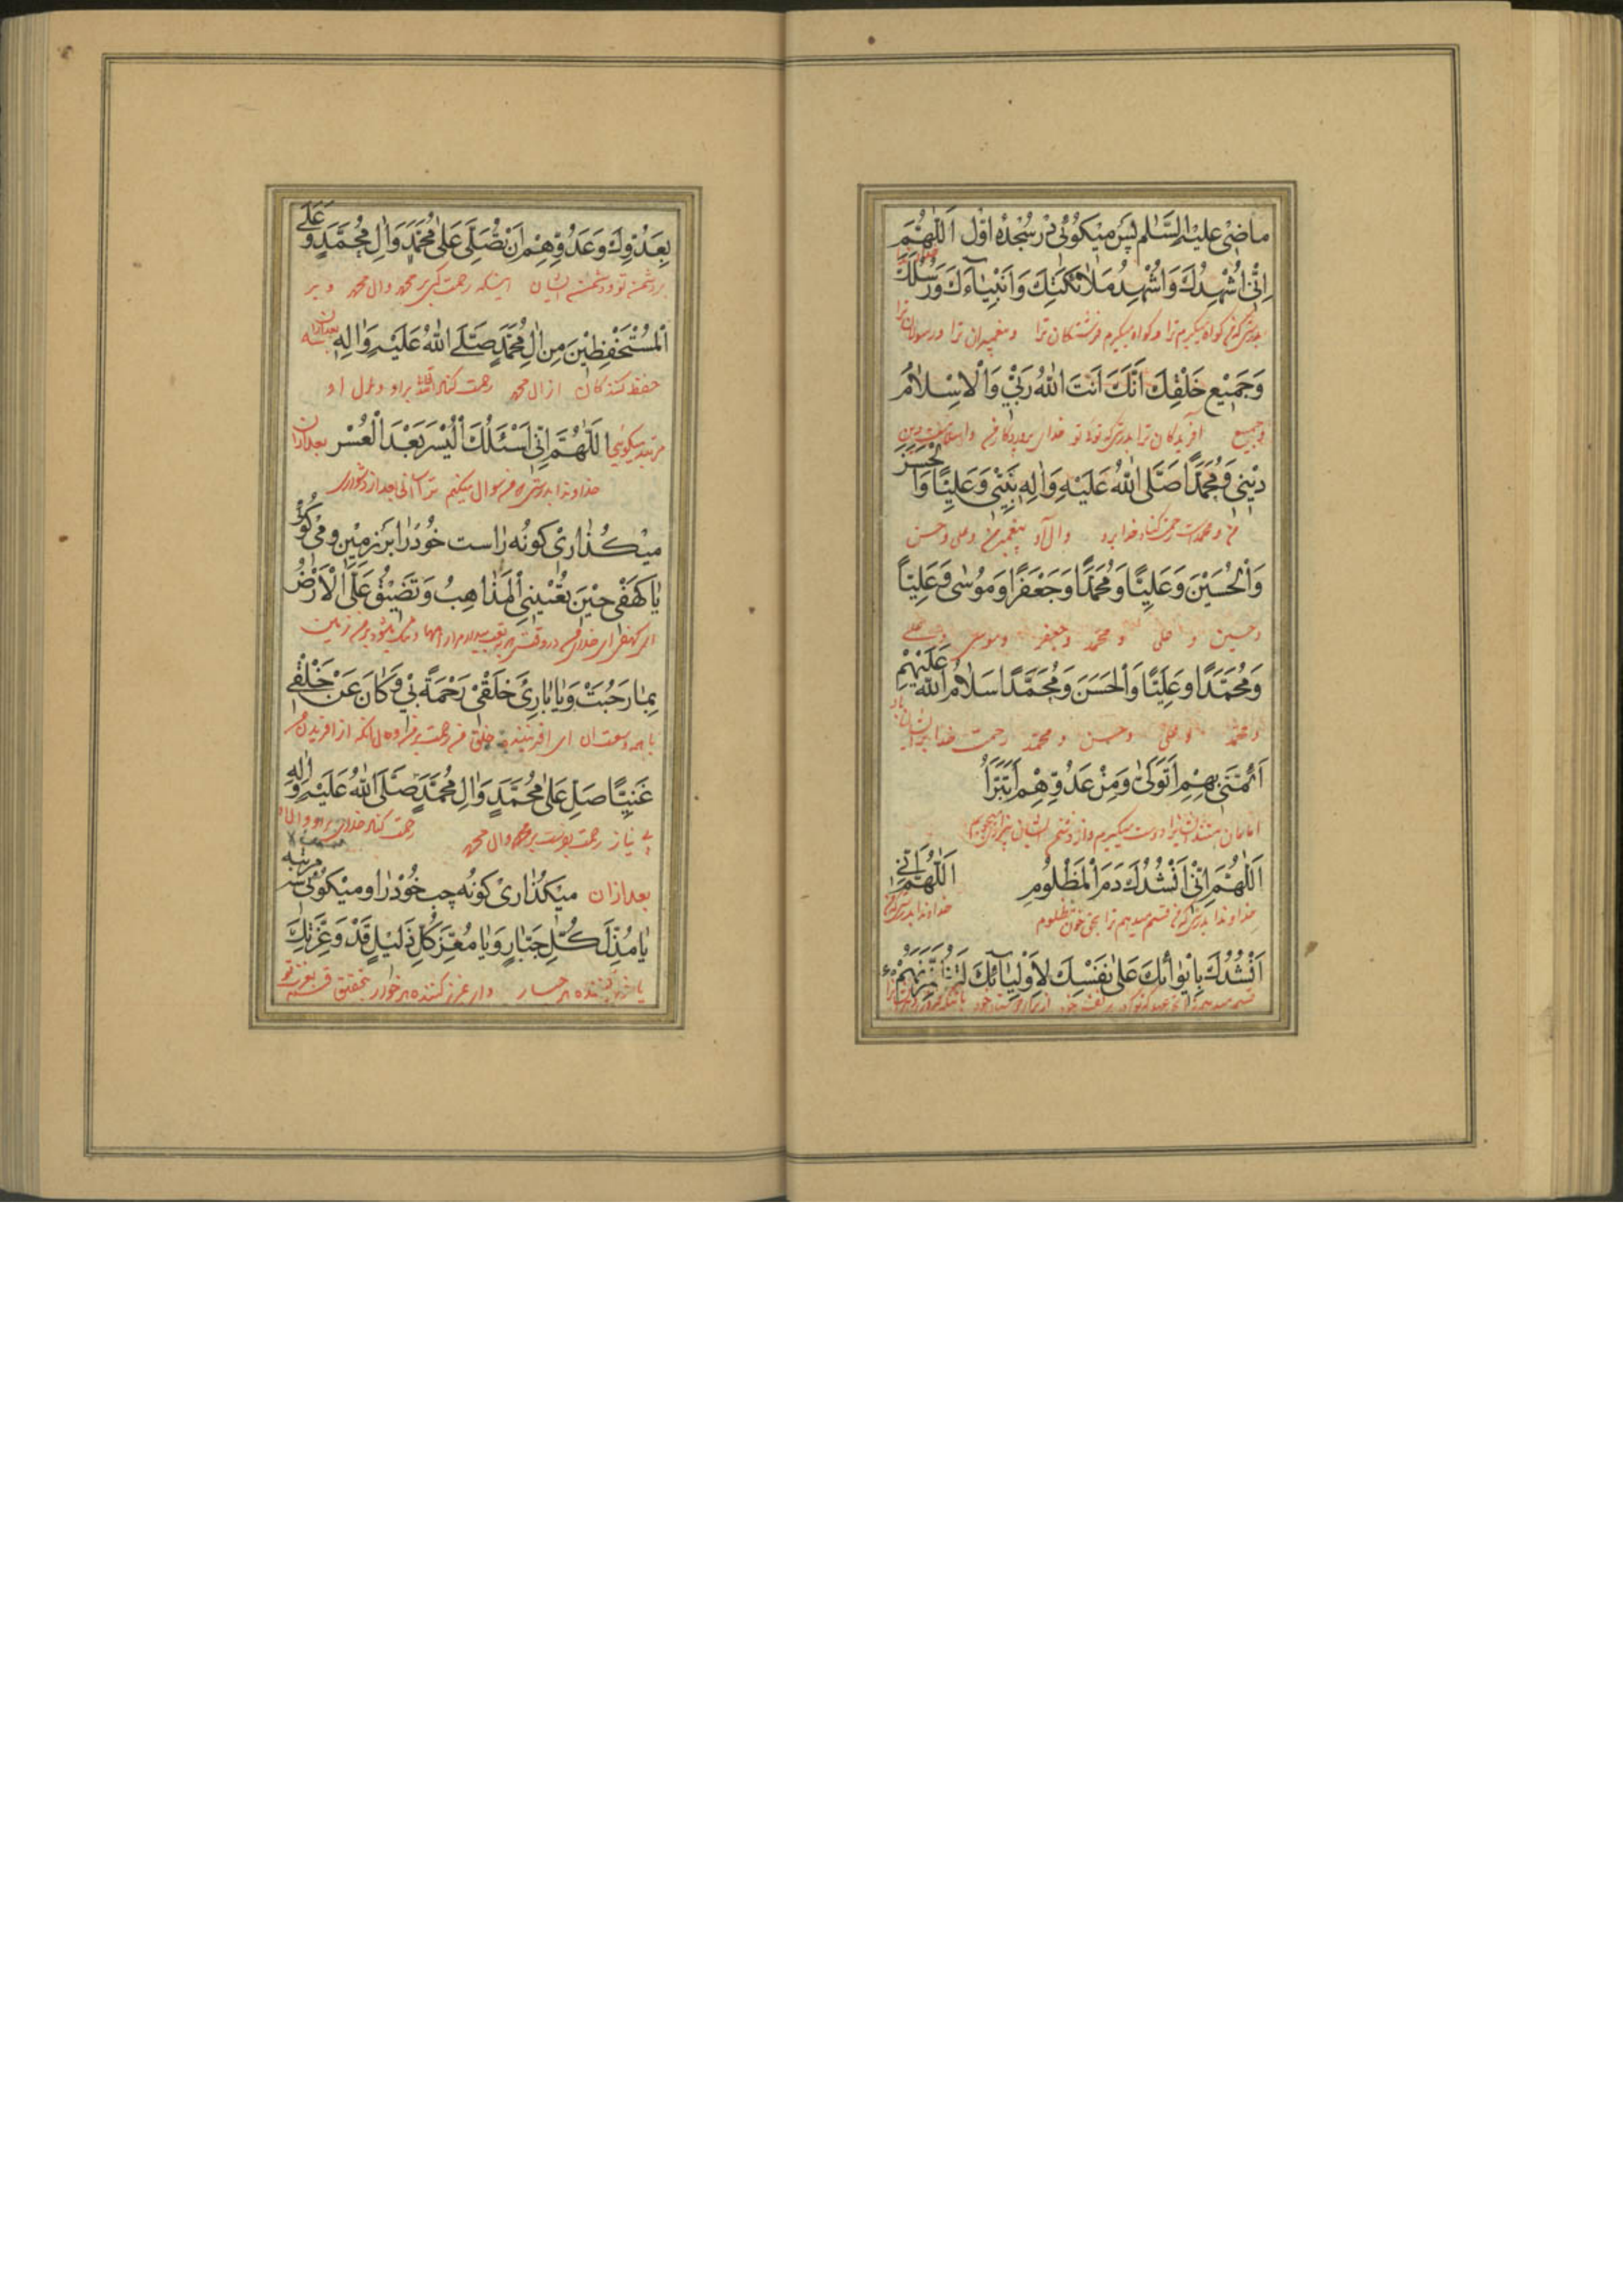 ماضی علیه السّلام پس میکوئی در سجدهٔ اوّل اَللّٰهُمَّ
خداوندا
اِنّی اُشْهِدُكَ وَاُشْهِدُ مَلٰائِکَتَكَ وَاَنْبِیٰآءَكَ وَرُسُلَكَ
بدرستیکه من کواه میکیرم ترا و کواه میکیرم فرشتکان ترا و پیغمبران ترا و رسولان ترا
وَجَمیعِ خَلْقِكَ اَنَّكَ اَنْتَ اللهُ رَبّی وَالْاِسْلٰامُ
وجمیع آفریدکان ترا بدرستیکه توئی تو خدای پروردکار من و اسلامست دین
دینی وَمُحَمَّدًا صَلَّی اللهُ عَلَیْهِ وَاٰلِهِ نَبِیّی وَعَلِیًّا وَالْحَسَنَ
من و محمدست رحمت کناد خدا برو وال او پیغمبر من و علی و حسن
وَالْحُسَیْنَ وَعَلِیًّا وَمُحَمَّدًا وَجَعْفَرًا وَمُوسٰی وَعَلِیًّا
وحسین و علی و محمّد وجعفر وموسی وعلی
وَمُحَمَّدًا وَعَلِیًّا وَالْحَسَنَ وَمُحَمَّدًا سَلٰامُ اللهِ عَلَیْهِمْ
ومحمّد و علی وحسن ومحمّد رحمت خدا بر ایشان باد
اَئِمَّتی بِهِمْ اَتَوَلّٰی وَمِنْ عَدُوِّهِمْ اَتَبَرَّاُ
امامان منند ایشانرا دوست میکیرم و از دشمن ایشان بیزاری میجویم
اَللّٰهُمَّ اِنّی اَنْشُدُكَ دَمَ الْمَظْلُومِ اَللّٰهُمَّ اِنّی
خداوندا بدرستیکه من قسم میدهم ترا بحق خون مظلوم خداوندا بدرستیکه من
اَنْشُدُكَ بِاِیْوٰائِكَ عَلٰی نَفْسِكَ لِاَوْلِیٰآئِكَ لَتُظْفِرَنَّهُمْ
قسم میدهم ترا خود از برای دوستان خود
بِعَدُوِّكَ وَعَدُوِّهِمْ اَنْ تُصَلِّیَ عَلٰی مُحَمَّدٍ وَاٰلِ مُحَمَّدٍ وَعَلَی
بر دشمن تو و دشمن ایشان اینکه رحمت کنی بر محمد وال محمد و بر
الْمُسْتَحْفِظینَ مِنْ اٰلِ مُحَمَّدٍ صَلَّی اللهُ عَلَیْهِ وَاٰلِهِ بعدازان سه
حفظ کنندکان از ال محمد رحمت کناد الله براو و بر ال او
مرتبه میکوئی اَللّٰهُمَّ اِنّی اَسْئَلُكَ الْیُسْرَ بَعْدَ الْعُسْرِ بعدازان
خداوندا بدرستیکه من سوال میکنم ترا اسانی بعد از دشواری
میکذاری کونه راست خود را بر زمین و می کوئی
یٰا کَهْفی حینَ تُعْیینِی الْمَذٰاهِبُ وَتَضیقُ عَلَیَّ الْاَرْضُ
ای کهف ای خدای من در وقتی که بتعب میدارد مرا راهها و تنک میشود بر من زمین
بِمٰا رَحُبَتْ وَیٰا بٰارِئَ خَلْقی رَحْمَةً بی وَکٰانَ عَنْ خَلْقی
با همه وسعت ان ای افریننده خلق من رحمت بر من وحال انکه از افریدن من
غَنِیًّا صَلِّ عَلٰی مُحَمَّدٍ وَاٰلِ مُحَمَّدٍ صَلَّی اللهُ عَلَیْهِ وَاٰلِهِ
بی نیاز رحمت بفرست بر محمد وال محمد رحمت کناد خدای براو وال او
بعدازان میکذاری کونه چپ خود را و میکوئی سه مرتبه
یٰا مُذِلَّ کُلِّ جَبّٰارٍ وَیٰا مُعِزَّ کُلِّ ذَلیلٍ قَدْ وَعِزَّتِكَ
هر جبار و ای عزیز کننده هر خوار بتحقیق قسم بعزت تو